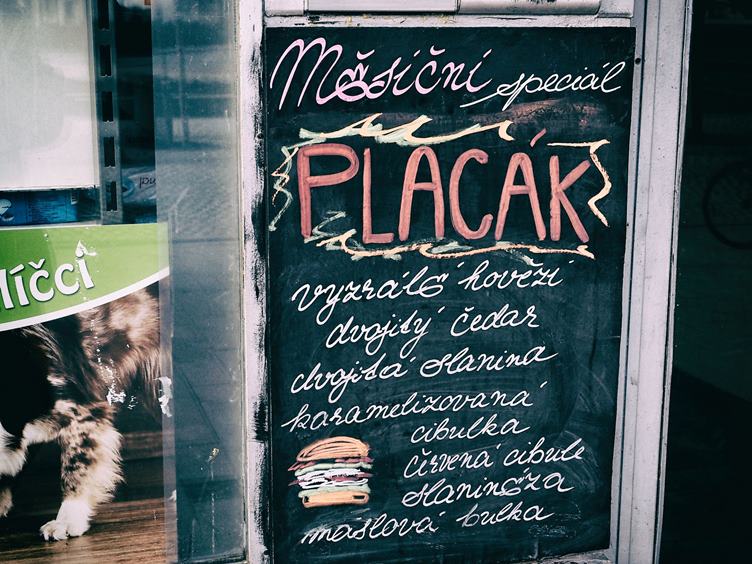 Měsíční speciál
PLACÁK
vyzrálé hovězí
dvojitý čedar
dvojitá slanina
karamelizovaná
cibulka
červená cibule
slaninéza
máslová bulka
líčci